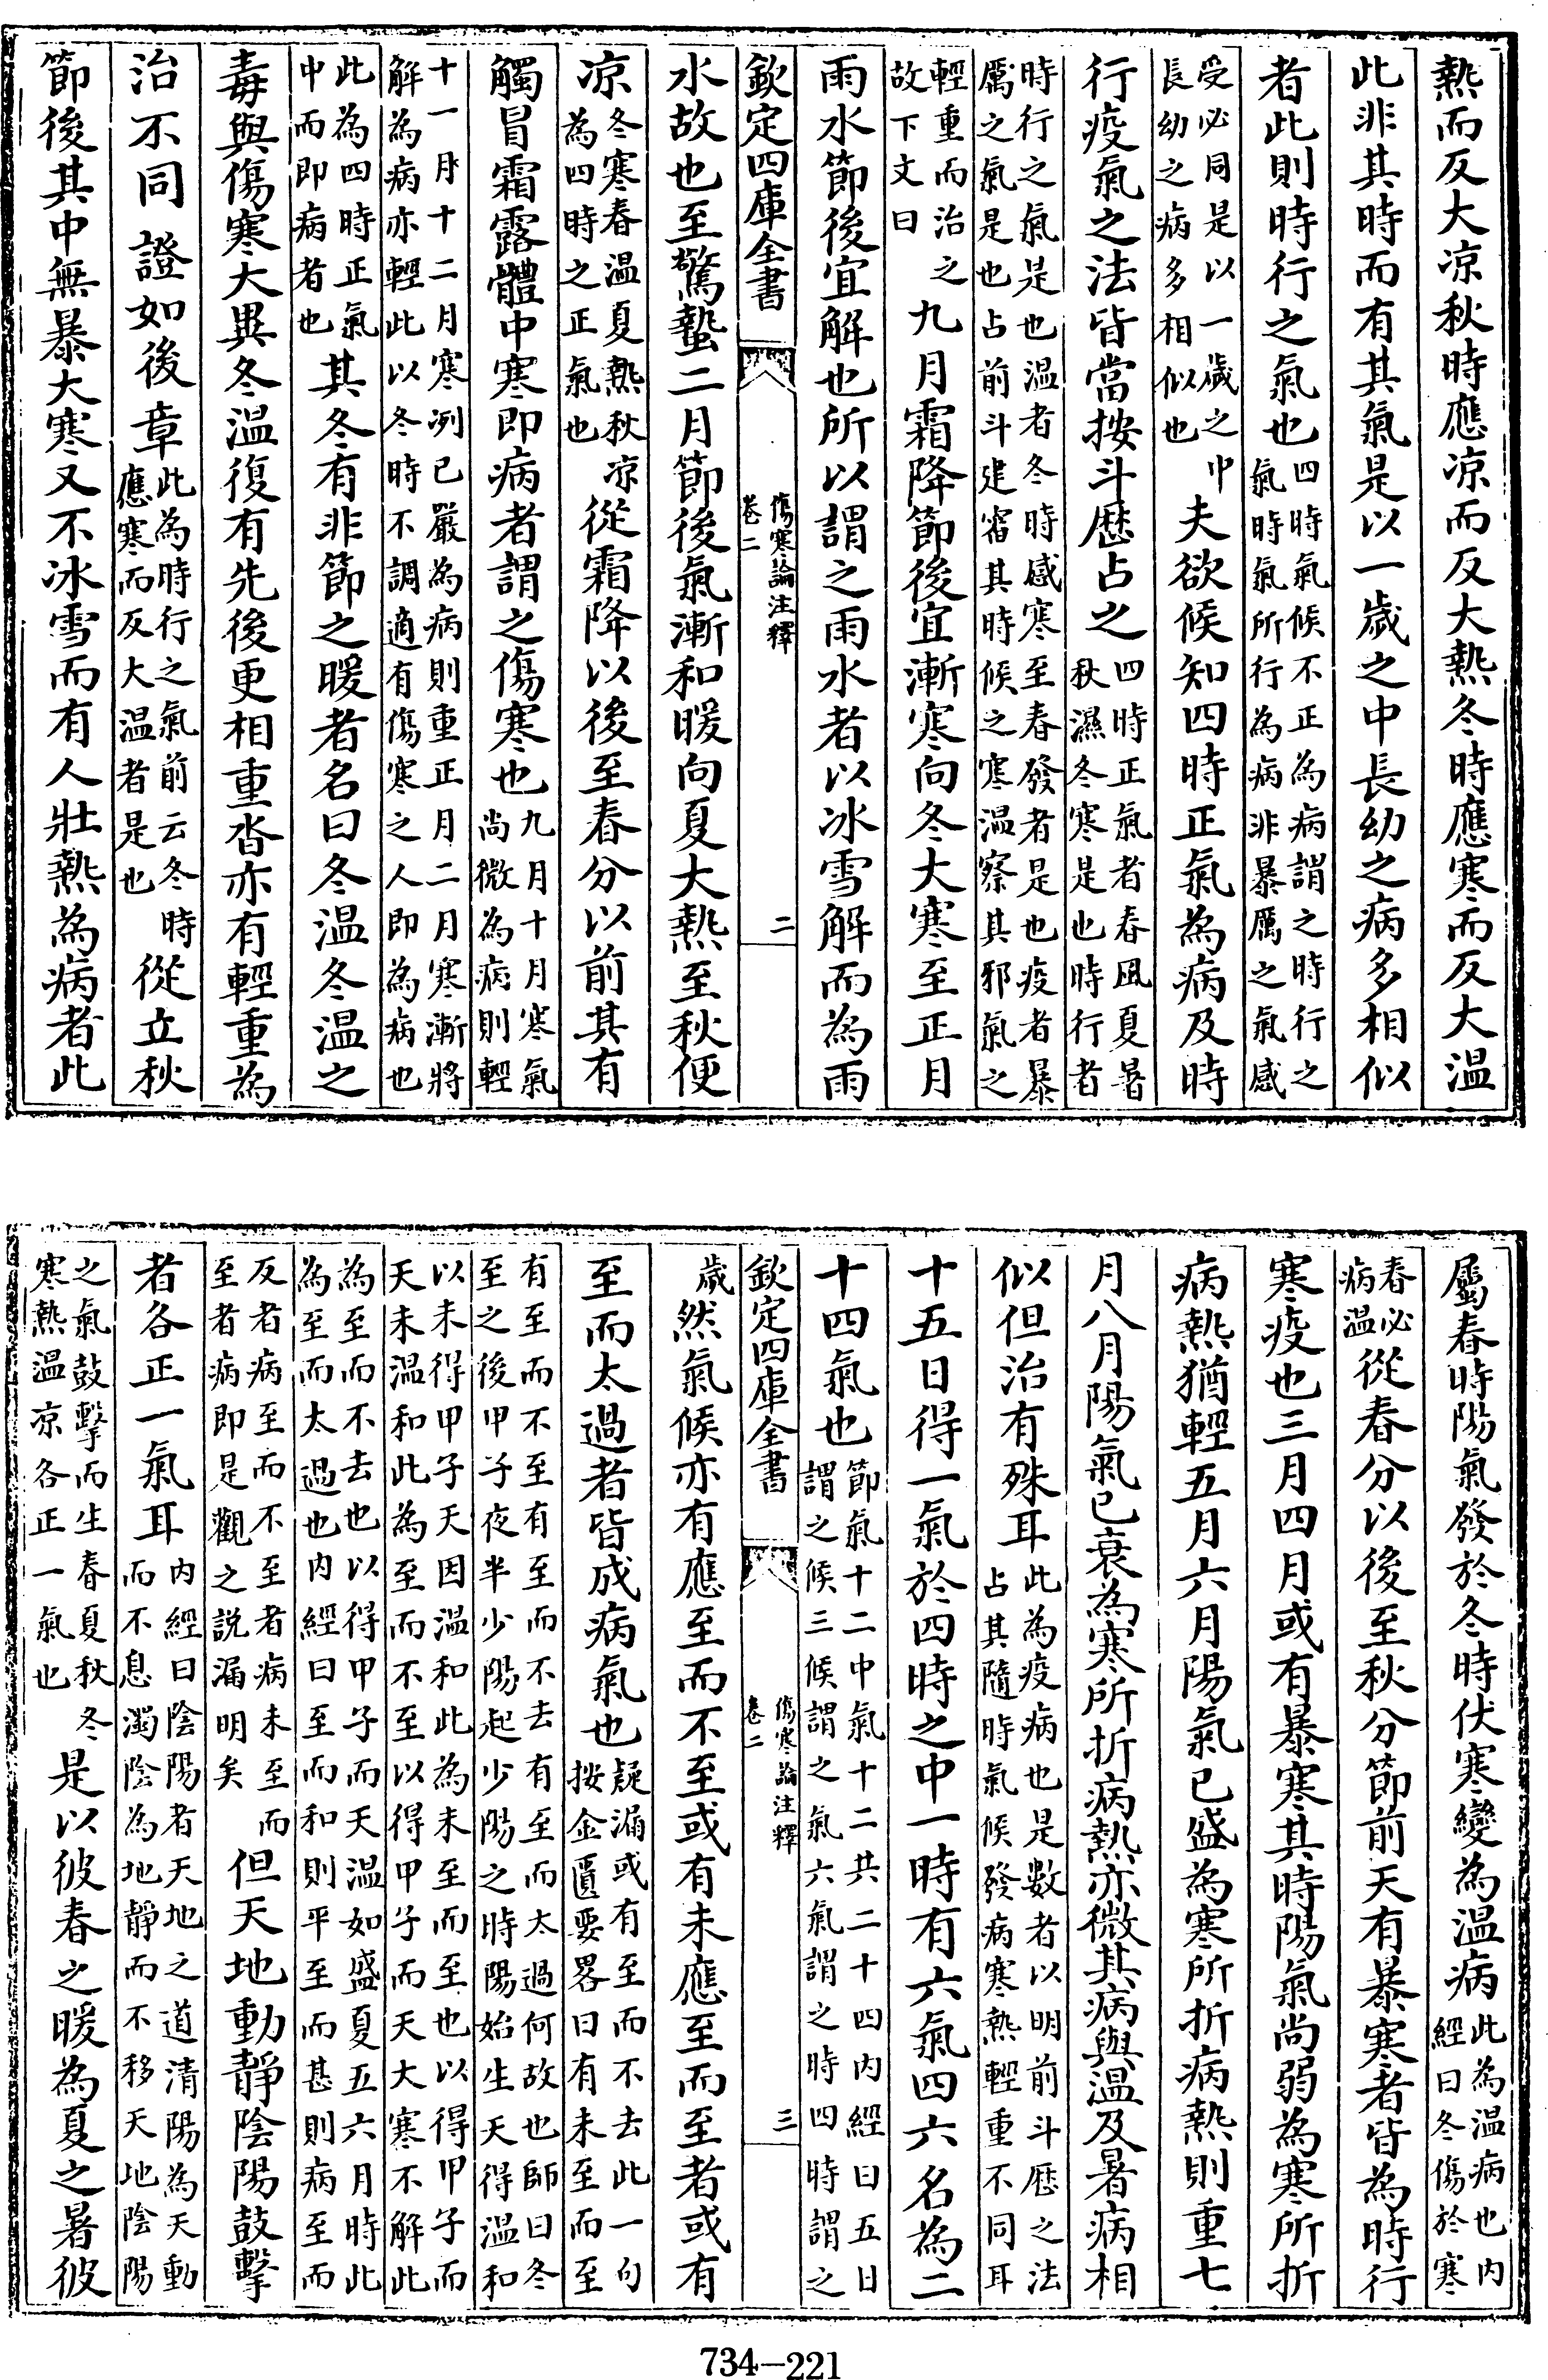 熱而反大凉秋時應凉而反大熱冬時應寒而反大温
此非其時而有其氣是以一歲之中長幼之病多相似
者此則時行之氣也
四時氣候不正為病謂之時行之
氣時氣所行為病非暴厲之氣感
受必同是以一歲之中
長幼之病多相似也
夫欲候知四時正氣為病及時
行疫氣之法皆當按斗歷占之
四時正氣者春風夏暑
秋濕冬寒是也時行者
時行之氣是也温者冬時感寒至春發者是也疫者暴
厲之氣是也占前斗建審其時候之寒温察其邪氣之
輕重而治之
故下文曰
九月霜降節後宜漸寒向冬大寒至正月
雨水節後宜解也所以謂之雨水者以冰雪解而為雨
欽定四庫全書
傷寒論注釋
卷二
二
水故也至驚蟄二月節後氣漸和暖向夏大熱至秋便
凉
冬寒春温夏熱秋凉
為四時之正氣也
從霜降以後至春分以前其有
觸冒霜露體中寒即病者謂之傷寒也
九月十月寒氣
尚微為病則輕
十一月十二月寒冽已嚴為病則重正月二月寒漸將
解為病亦輕此以冬時不調適有傷寒之人即為病也
此為四時正氣
中而即病者也
其冬有非節之暖者名曰冬温冬温之
毒與傷寒大異冬温復有先後更相重沓亦有輕重為
治不同證如後章
此為時行之氣前云冬時
應寒而反大温者是也
從立秋
節後其中無暴大寒又不冰雪而有人壯熱為病者此
屬春時陽氣發於冬時伏寒變為温病
此為温病也内
經曰冬傷於寒
春必
病温
從春分以後至秋分節前天有暴寒者皆為時行
寒疫也三月四月或有暴寒其時陽氣尚弱為寒所折
病熱猶輕五月六月陽氣已盛為寒所折病熱則重七
月八月陽氣已衰為寒所折病熱亦微其病與温及暑病相
似但治有殊耳
此為疫病也是數者以明前斗歷之法
占其隨時氣候發病寒熱輕重不同耳
十五日得一氣於四時之中一時有六氣四六名為二
十四氣也
節氣十二中氣十二共二十四内經曰五日
謂之候三候謂之氣六氣謂之時四時謂之
欽定四庫全書
傷寒論注釋
卷二
三
歲
然氣候亦有應至而不至或有未應至而至者或有
至而太過者皆成病氣也
疑漏或有至而不去此一句
按金匱要畧曰有未至而至
有至而不至有至而不去有至而太過何故也師曰冬
至之後甲子夜半少陽起少陽之時陽始生天得温和
以未得甲子天因温和此為未至而至也以得甲子而
天未温和此為至而不至以得甲子而天大寒不解此
為至而不去也以得甲子而天温如盛夏五六月時此
為至而太過也内經曰至而和則平至而甚則病至而
反者病至而不至者病未至而
至者病即是觀之説漏明矣
但天地動靜陰陽鼓擊
者各正一氣耳
内經曰陰陽者天地之道清陽為天動
而不息濁陰為地靜而不移天地陰陽
之氣鼓擊而生春夏秋冬
寒熱温凉各正一氣也
是以彼春之暖為夏之暑彼
734-221